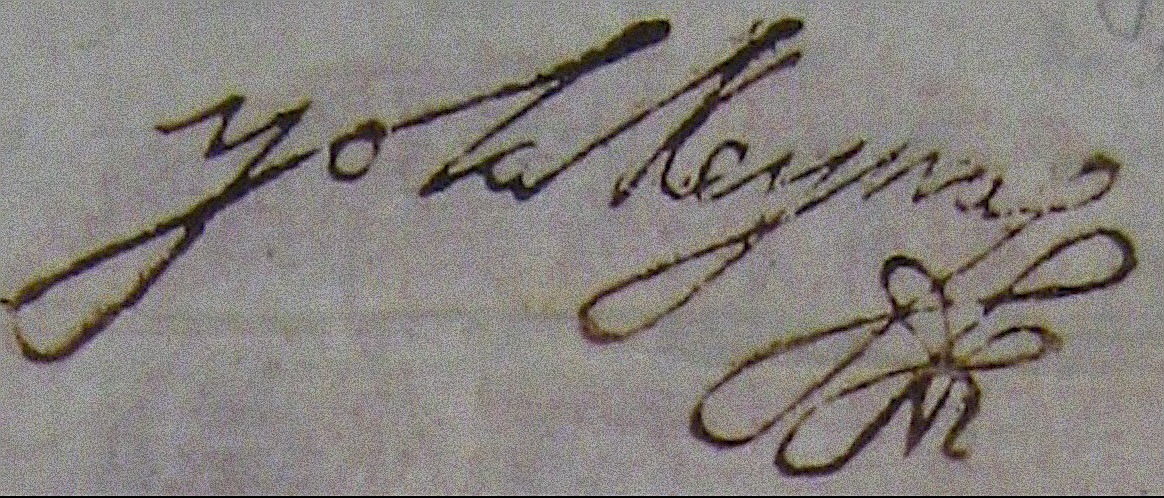 yo la Reyna